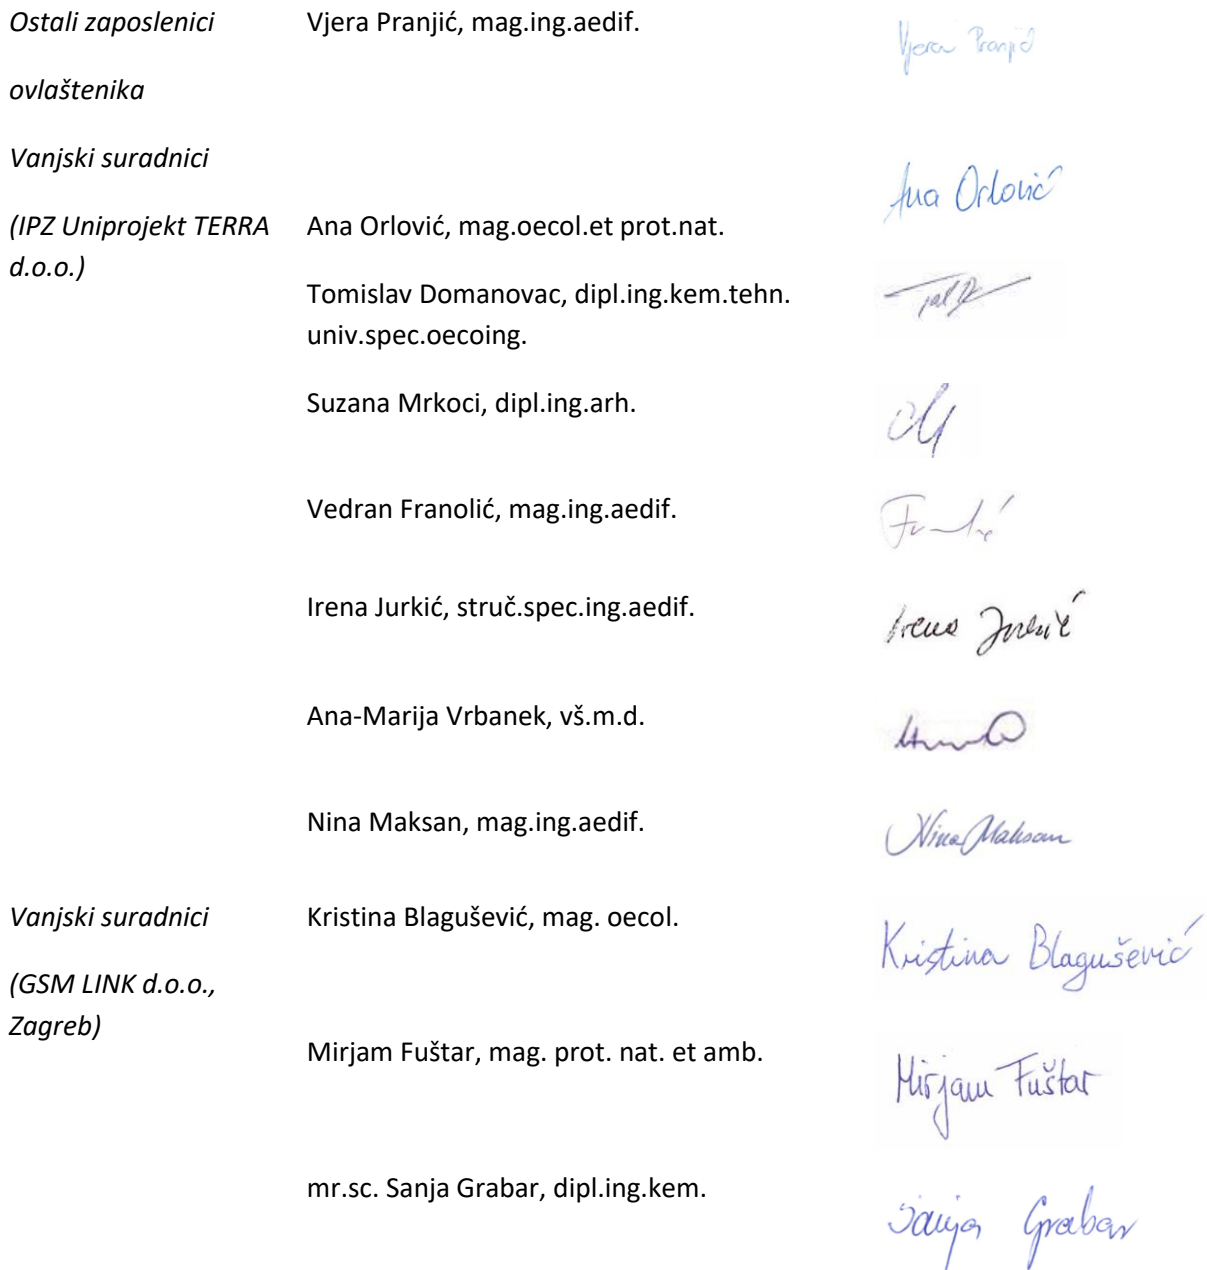 Ostali zaposlenici Vjera Pranjić, mag.ing.aedif. Vjera Pranjić
ovlaštenika
Vanjski suradnici
(IPZ Uniprojekt TERRA Ana Orlović, mag.oecol.et prot.nat. Ana Orlović
d.o.o.)
Tomislav Domanovac, dipl.ing.kem.tehn.
univ.spec.oecoing.
Suzana Mrkoci, dipl.ing.arh.
Vedran Franolić, mag.ing.aedif.
Irena Jurkić, struč.spec.ing.aedif. Irena Jurkić
Ana-Marija Vrbanek, vš.m.d.
Nina Maksan, mag.ing.aedif. Nina Maksan
Vanjski suradnici Kristina Blagušević, mag. oecol. Kristina Blagušević
(GSM LINK d.o.o.,
Zagreb)
Mirjam Fuštar, mag. prot. nat. et amb. Mirjam Fuštar
mr.sc. Sanja Grabar, dipl.ing.kem. Sanja Grabar